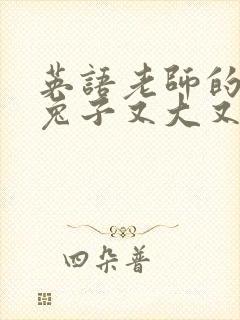 英語老師的
兔子又大又
四朵普